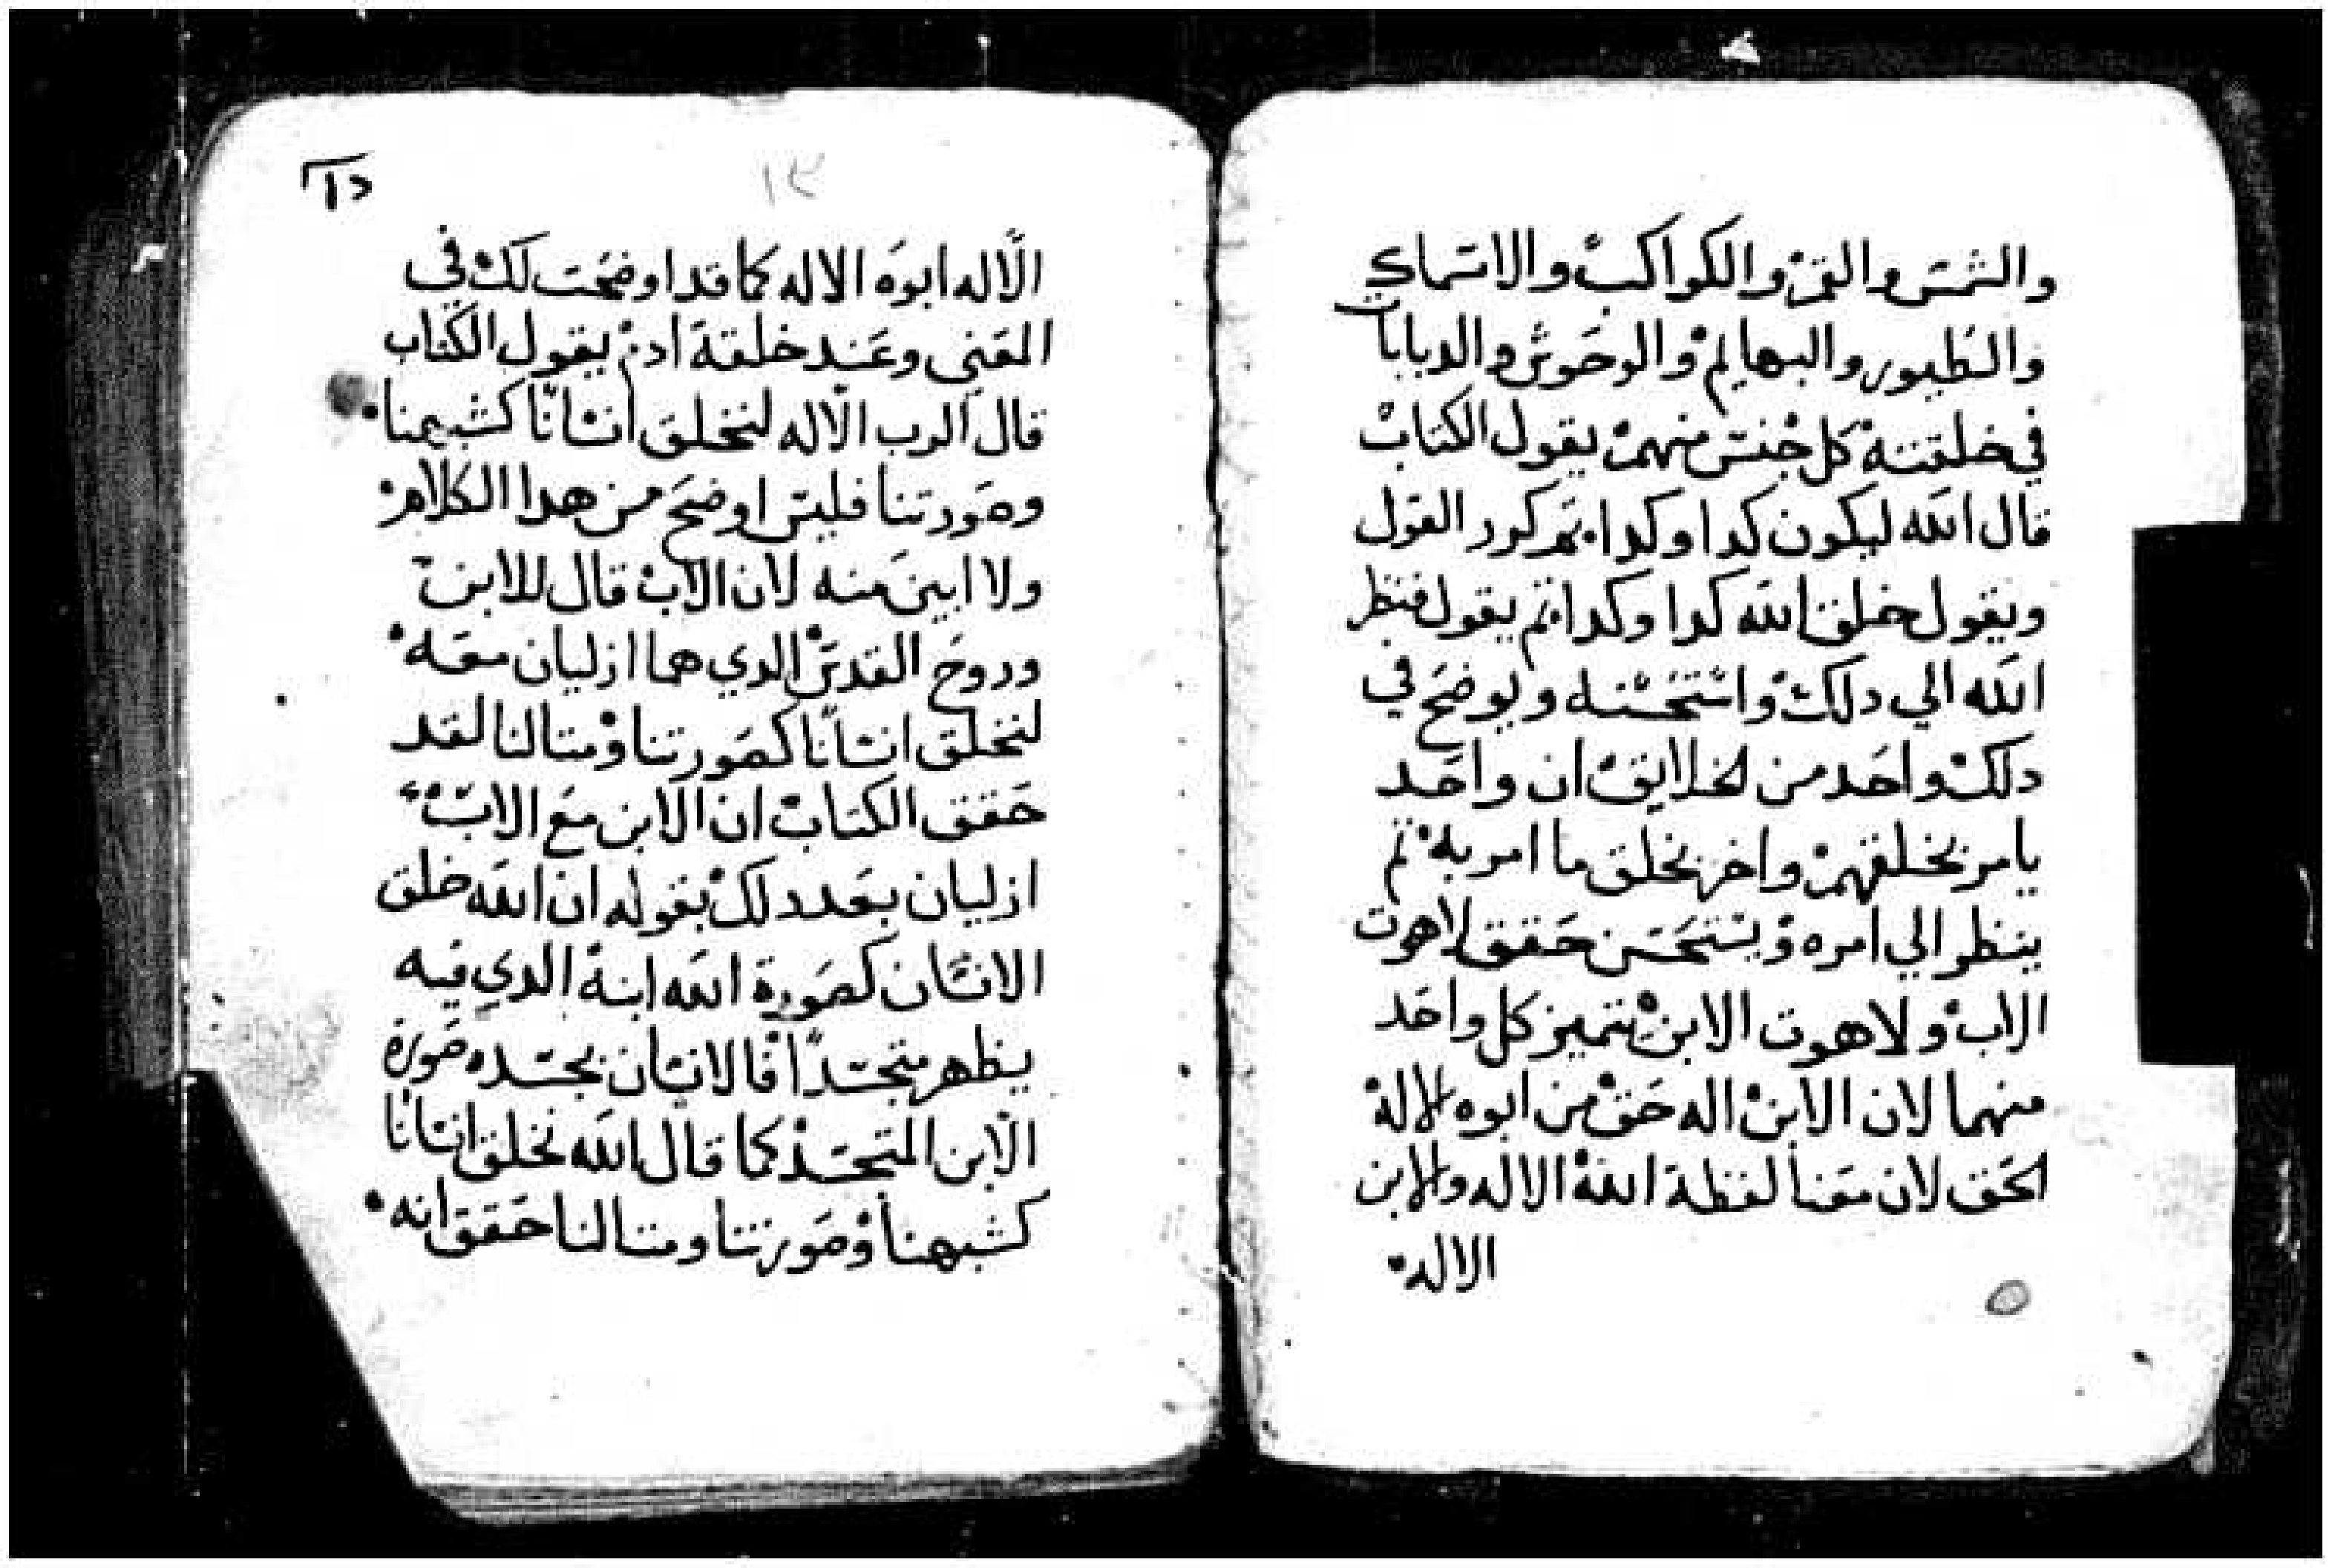 والشمس والقمر والكواكب والاسماك
والطيور والبهايم والوحوش والدبابات
في خلقتنه كل جنس منهم يقول الكتاب
قال الله ليكون كدا وكدا ثم كرر القول
ويقول خلق الله كدا وكدا ثم يقول فنظر
الله الي دلك واستحسنه ويوضح في
دلك واحد من لخلايق ان واحد
يامر بخلقهم واخر يخلق ما امر به ثم
ينظر الي امره ويستحسن حقق لاهوت
الاب ولاهوت الابن بتميز كل واحد
منهما لان الابن اله حق من ابوه الاله
لحق لان معنا لفظة الله الاله والابن
الاله
١٢
الاله ابوه الاله كما قد اوضحت لك في
المعني وعند خلقة ادم يقول الكتاب
قال الرب الاله لنخلق انسانا كشبهنا
وصورتنا فليس اوضح من هدا الكلام
ولا ابين منه لان الاب قال للابن
وروح القدس الدي هما ازليان معه
لنخلق انسانا كصورتنا ومتالنا لقد
حقق الكتاب ان الابن مع الاب
ازليان بعد دلك بقوله ان الله خلق
الانسان كصورة الله ابنه الدي فيه
يظهر متجسدا فالانسان بجسده صورة
الابن المتجسد كما قال الله نخلق انسانا
كشبهنا وصورتنا ومتالنا حقق انه